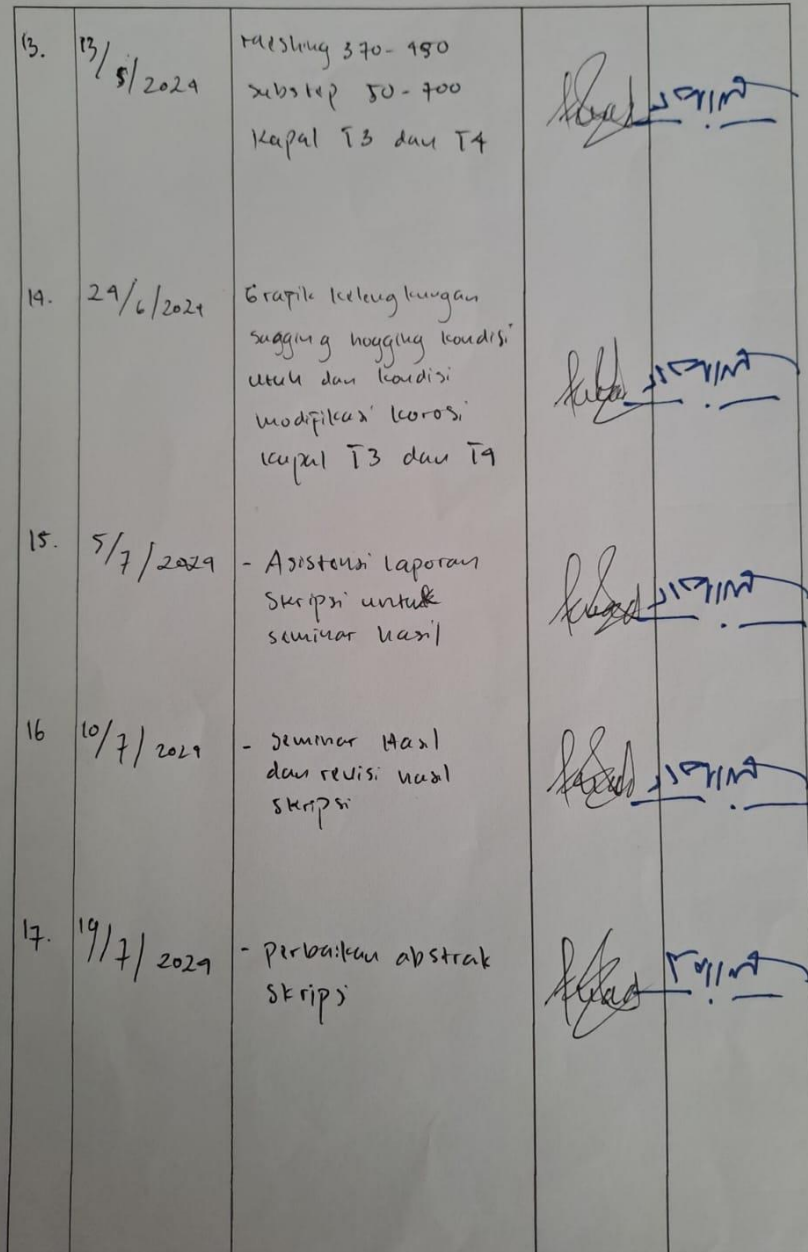 13.
13/5/2024
meshing 370-450
substep 50-700
Kapal T3 dan T4
14.
24/6/2024
Grafik kelengkungan
sagging hogging kondisi
utuh dan kondisi
modifikasi korosi
kapal T3 dan T4
15.
5/7/2024
- Asistensi laporan
skripsi untuk
seminar hasil
16
10/7/2024
- Seminar Hasil
dan revisi hasil
skripsi
17.
19/7/2024
- perbaikan abstrak
skripsi